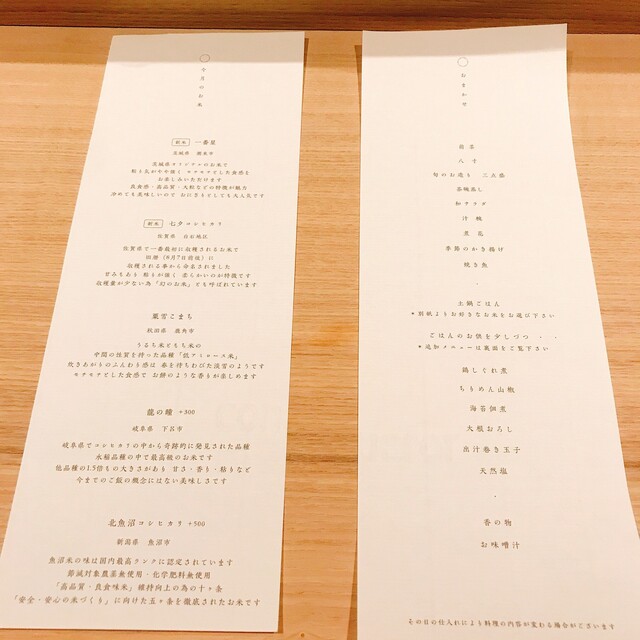 今月のお米
新米 一番星
茨城県 潮来市
茨城県オリジナルのお米で
粘り気がやや強く モチモチとした食感を
お楽しみいただけます
良食感・高品質・大粒などの特徴が魅力
冷めても美味しいので おにぎりとしても大人気です
新米 七夕コシヒカリ
佐賀県 白石地区
佐賀県で一番最初に収穫されるお米で
旧暦(8月7日前後)に
収穫される事から命名されました
甘みもあり 粘りが強く 柔らかいのが特徴です
収穫量が少ない為「幻のお米」とも呼ばれています
淡雪こまち
秋田県 鹿角市
うるち米ともち米の
中間の性質を持った品種「低アミロース米」
炊きあがりのふんわり感は 春を待ちわびた淡雪のようです
モチモチとした食感で お餅のような香りが楽しめます
龍の瞳 +300
岐阜県 下呂市
岐阜県でコシヒカリの中から奇跡的に発見された品種
水稲品種の中で最高級のお米です
他品種の1.5倍もの大きさがあり 甘さ・香り・粘りなど
今までのご飯の概念にはない美味しさです
北魚沼コシヒカリ +500
新潟県 魚沼市
魚沼米の味は国内最高ランクに認定されています
節減対象農薬無使用・化学肥料無使用
「高品質・良食味米」維持向上の為の十ヶ条
「安全・安心の米づくり」に向けた五ヶ条を徹底されたお米です
おまかせ
前菜
八寸
旬のお造り 三点盛
茶碗蒸し
和サラダ
汁椀
煮花
季節のかき揚げ
焼き魚
・
土鍋ごはん
*別紙よりお好きなお米をお選び下さい
ごはんのお供を少しづつ ・・
*追加メニューは裏面をご覧下さい
鶏しぐれ煮
ちりめん山椒
海苔佃煮
大根おろし
出汁巻き玉子
天然塩
・
香の物
お味噌汁
その日の仕入れにより料理の内容が変わる場合がございます